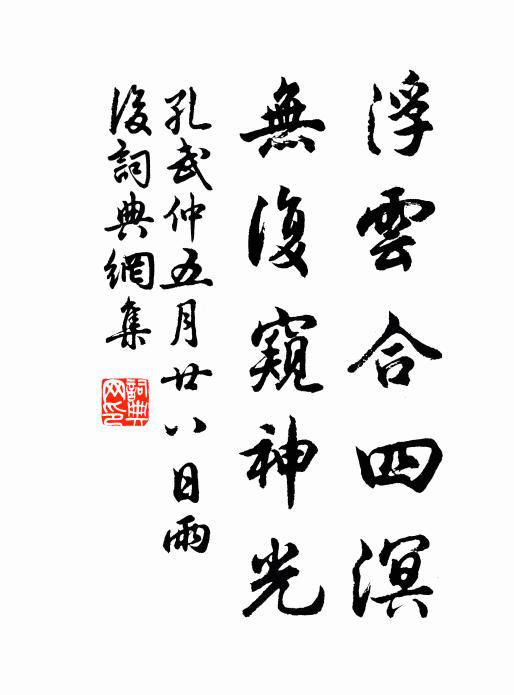 浮雲合四溟
無復窺神光
孔武仲五月廿八日雨
後詞典網集
詞典網印